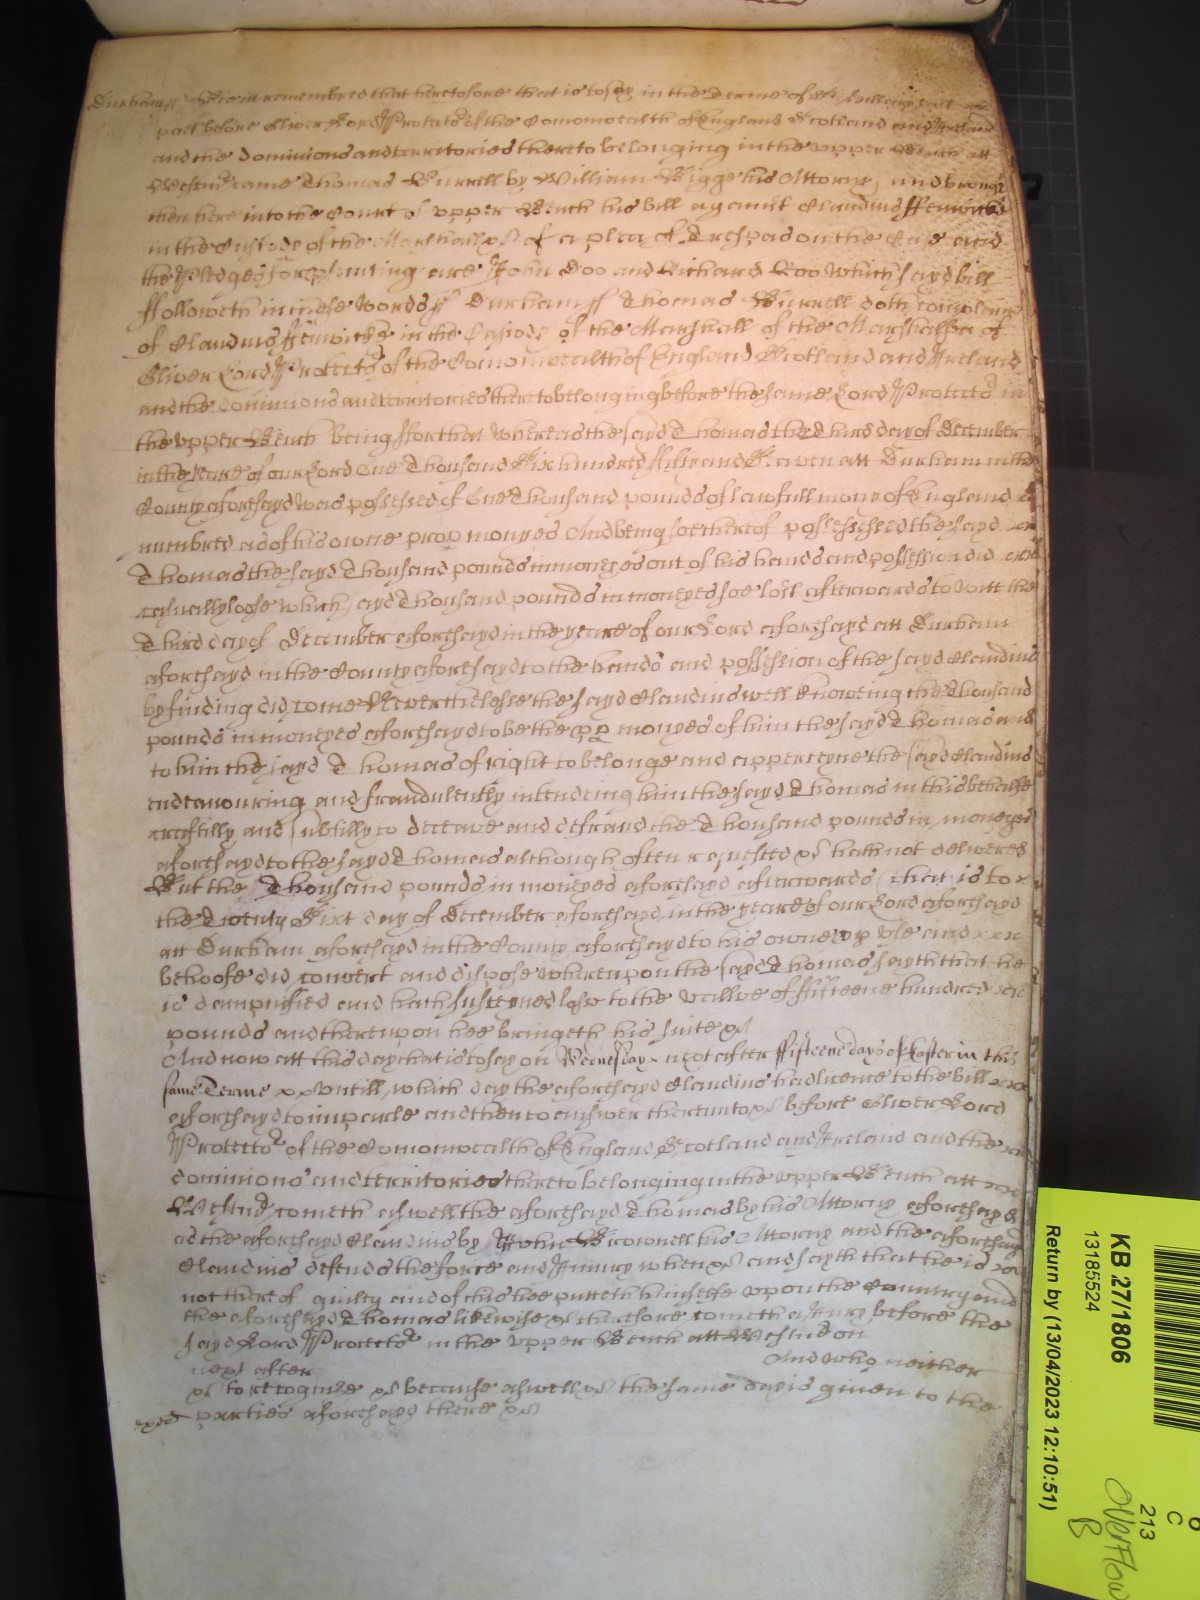 Durham ss Be it remembred that heretofore that is to say in the Terme of St Hillary last
past before Oliver Lord Protector of the Comonwealth of England Scotland and Ireland
and the dominions and territories thereto belonging in the upper Bench att
Westmr came Thomas Burrell by William Bigge his Attorny and brought
then here into the Court of upper Bench his bill against Claudius ffenwicke
in the Custody of the Marshall &c of a plea of Trespas on the Case and
the Pledges for prosecuting are John Doo and Richard Roo Which sayd bill
ffolloweth in these words ss Durham ss Thomas Burrell doth complaine
of Claudius ffenwicke in the Custody of the Marshall of the Marshalsea of
Oliver Lord Protector of the Comonwealth of England Scotland and Ireland
and the dominions and territories thereto belonging before the same Lord Protector in
the upper Bench being ffor that Whereas the sayd Thomas the Third day of December
in the yeare of our Lord One Thousand Six hundred fifty and Seaven att Durham in the
County aforesayd was possessed of One Thousand pounds of lawfull mony of England
numbred as of his owne prop monyes And being soe thereof possessed the sayd
Thomas the sayd Thousand pounds in moneyes out of his hands and possession did
casually loose which sayd Thousand pounds in moneyes soe lost afterwards to witt the
Third day of December aforesayd in the yeare of our Lord aforesayd att Durham
aforesayd in the County aforesayd to the hands and possession of the sayd Claudius
by finding did come Neverthelesse the sayd Claudius well knoweing the Thousand
pounds in moneyes aforesayd to be the pp monyes of him the sayd Thomas and
to him the sayd Thomas of right to belonge and apperteyne the sayd Claudius
endeavouring and fraudulently intending him the sayd Thomas in this behalfe
craftilly and subtilly to deceave and defraud the Thousand pounds in moneyes
aforesayd to the sayd Thomas although often requested &c hath not delivered
But the Thousand pounds in moneyes aforesayd afterwards that is to
the Twenty Sixt day of December aforesayd in the yeare of our Lord aforesayd
att Durham aforesayd in the County aforesayd to his owne pp use and
behoofe did convert and dispose whereupon the sayd Thomas sayth that he
is dampnified and hath susteyned losse to the vallue of ffifteene hundred
pounds and thereupon hee bringeth his suite &c
And now att this day that is to say on Wednesday next after ffifteene days of Easter in this
same Terme untill which day the aforesayd Claudius had licence to the bill
aforesayd to imparle and then to answer thereunto &c before Oliver Lord
Protector of the Comonwealth of England Scotland and Ireland and the
dominions and territories thereto belonging in the upper Bench att
Westmr cometh aswell the aforesayd Thomas by his Attorny aforesayd
as the aforesayd Claudius by John Brownell his Attorny and the aforesayd
Claudius defends the force and Iniury when &c and sayth that he is
not thereof guilty and of this hee putteth himselfe upon the Country and
the aforesayd Thomas likewise &c therefore cometh a Jury before the
sayd Lord Protector in the upper Bench att Westmr on
next after And who neither
&c to recognize &c because aswell &c the same day is given to the
parties aforesayd there &c
KB 27/1806
13185524
Return by (13/04/2023 12:10:51)
C
213
Overflow
B